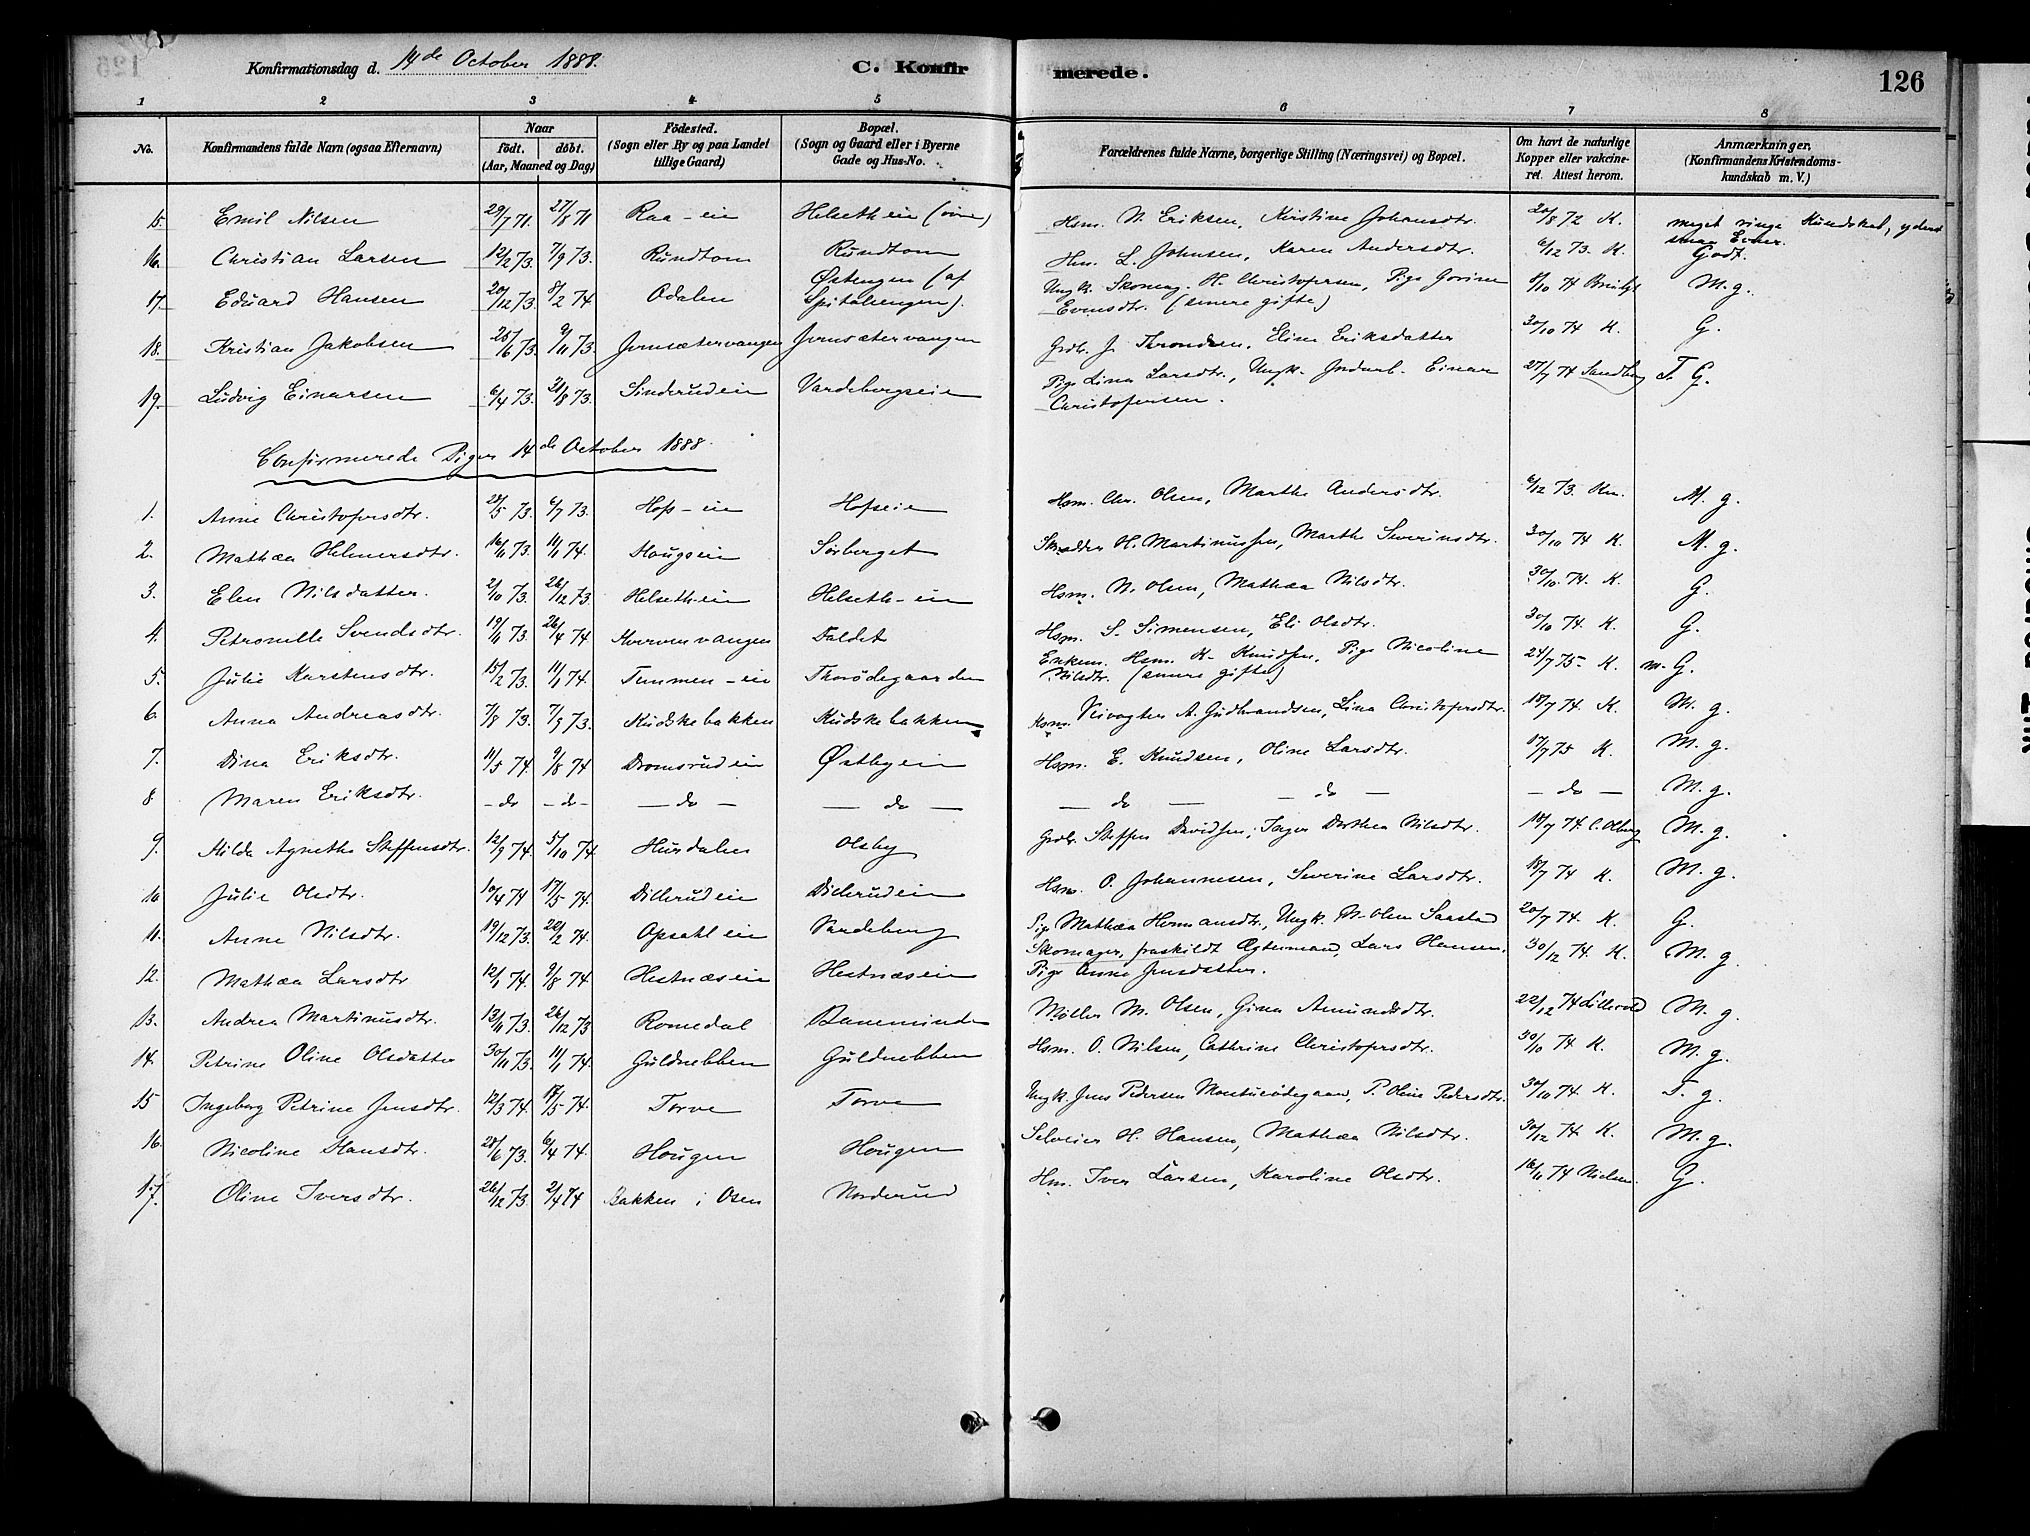 Konfirmationsdag d. 14de October 1888. C. Konfirmerede. 126
1 2 3 4 5 6 7 8
No. Konfirmandens fulde Navn (ogsaa Efternavn) Naar födt. döbt. (Aar, Maaned og Dag) Födested. (Sogn eller By og paa Landet tillige Gaard) Bopæl. (Sogn og Gaard eller i Byerne Gade og Hus-No. Forældrenes fulde Navne, borgerlige Stilling (Næringsvei) og Bopæl. Om havt de naturlige Kopper eller vakcineret. Attest herom. Anmærkninger. (Konfirmandens Kristendomskundskab m. V.)
15. Emil Nilsen 29/7 71. 27/8 71 Raa-eie Helseth eie Hsm. N. Eriksen, Kristine Johansdtr. 20/8 72 K. meget ringe Kundskab, yderst smaa Evner.
16. Christian Larsen 12/2 73. 7/9 73. Rundtom Rundtom Hm. L. Johnsen, Karen Andersdtr. 6/12 73. K. Godt.
17. Eduard Hansen 20/12 73. 8/2 74 Odalen Østengen (af Spitalengen). Ungk. Skomag. H. Christophersen, Pige Gorine Evensdtr. (senere gifte) 8/10 74 M. g.
18. Kristian Jakobsen 25/6 73. 9/11 73. Jonsætervangen Jonsætervangen Grdb. J. Throndsen, Eline Eriksdatter 30/10 74 K. G.
19. Ludvig Einarsen 6/4 73. 31/8 73. Sinderudeie Vardebergseie Pige Lina Larsdtr., Ungk. Inderst. Einar Christofersen. 27/7 74 Sandberg T. G.
Confirmerede Piger 14de October 1888.
1. Anne Christofersdtr. 28/5 73. 6/7 73. Hofs-eie Hofseie Hsm. Chr. Olsen, Marthe Andersdtr. 6/12 73. Km. M. g.
2. Mathea Helmersdtr. 16/11 73. 11/1 74. Hougseie Sørberget Skrædder H. Martinussen, Marthe Severinsdtr. 30/10 74 K. M. g.
3. Elen Nilsdatter. 2/10 73. 26/12 73. Helseth-eie Helseth-eie Hsm. N. Olsen, Mathea Nilsdtr. 30/10. 74. K. G.
4. Petronelle Svendsdtr. 19/11 73. 26/4 74 Korvenvangen Faldet Hsm. S. Simensen, Eli Olsdtr. 30/10 74. K. G.
5. Julie Karstensdtr. 15/2 73. 11/1 74. Tømmen-eie Thorödegaarden Enkem. Hsm. K. Knudsen, Pige Nicoline Nilsdtr. (senere gifte) 24/7 75. K. m. G.
6. Anna Andreasdtr. 7/8 73. 7/9 73. Kudskebakken Kudskebakken Hsm. Veivogter A. Gudbrandsen, Lina Christofersdtr. 18/7 74. K. M. g.
7. Dina Eriksdtr. 11/5 74 9/8 74 Dromsrudeie Østbyeie Hsm. E. Knudsen, Oline Larsdtr. 17/7 75 K. M. g.
8. Maren Eriksdtr. - do - do - — do — — do — — do — - do — - do — M. g.
9. Hilda Agnethe Steffensdtr. 12/9 74. 5/10 74 Hurdalen Olsby Grdb. Steffen Davidsen, Inger Dorthea Nilsdtr. 18/7 74. C. Olberg M. g.
10 Julie Olsdtr. 10/4 74 17/5 74. Dillerudeie Dillerudeie Hsm. O. Johannesen, Severine Larsdtr. 18/7 74 K. M. g.
11. Anne Nilsdtr. 19/12 73. 22/2 74. Opsahl eie Vardeberg Pige Mathea Hermansdtr., Ungk. N. Olsen Saastad 20/7 74. K. G.
12. Mathea Larsdtr 12/1 74. 9/8 74. Hestnæseie Hestnæseie Skomager, fraskildt Ægtemand, Lars Hansen, Pige Anne Jensdatter. 30/12 74. K. M. g.
13. Andrea Martinusdtr. 13/11 73. 26/12 73 Romedal Baneminde Møller M. Olsen, Gina Amundsdtr. 22/12 74 Lillevold M. g.
14. Petrine Oline Olsdatter 30/11 73. 11/1 74. Guldnebben Guldnebben Hsm. O. Nilsen, Cathrine Christofersdtr. 30/10 74 K. M. g.
15 Ingeborg Petrine Jensdtr. 12/3 74. 17/5 74. Torve Torve Ungk. Jens Pedersen, P. Oline Pedersdtr. 30/10 74. K. T. g.
16. Nicoline Hansdtr. 28/6 73. 6/4 74. Hougen Hougen Selveier H. Hansen, Mathea Nilsdtr. 30/12 74. K. M. g.
17. Oline Iversdtr. 26/12 73. 2/4 74 Bakken i Osen Norderud Hm. Iver Larsen, Karoline Olsdtr. 16/11 74 Nielsen. G.